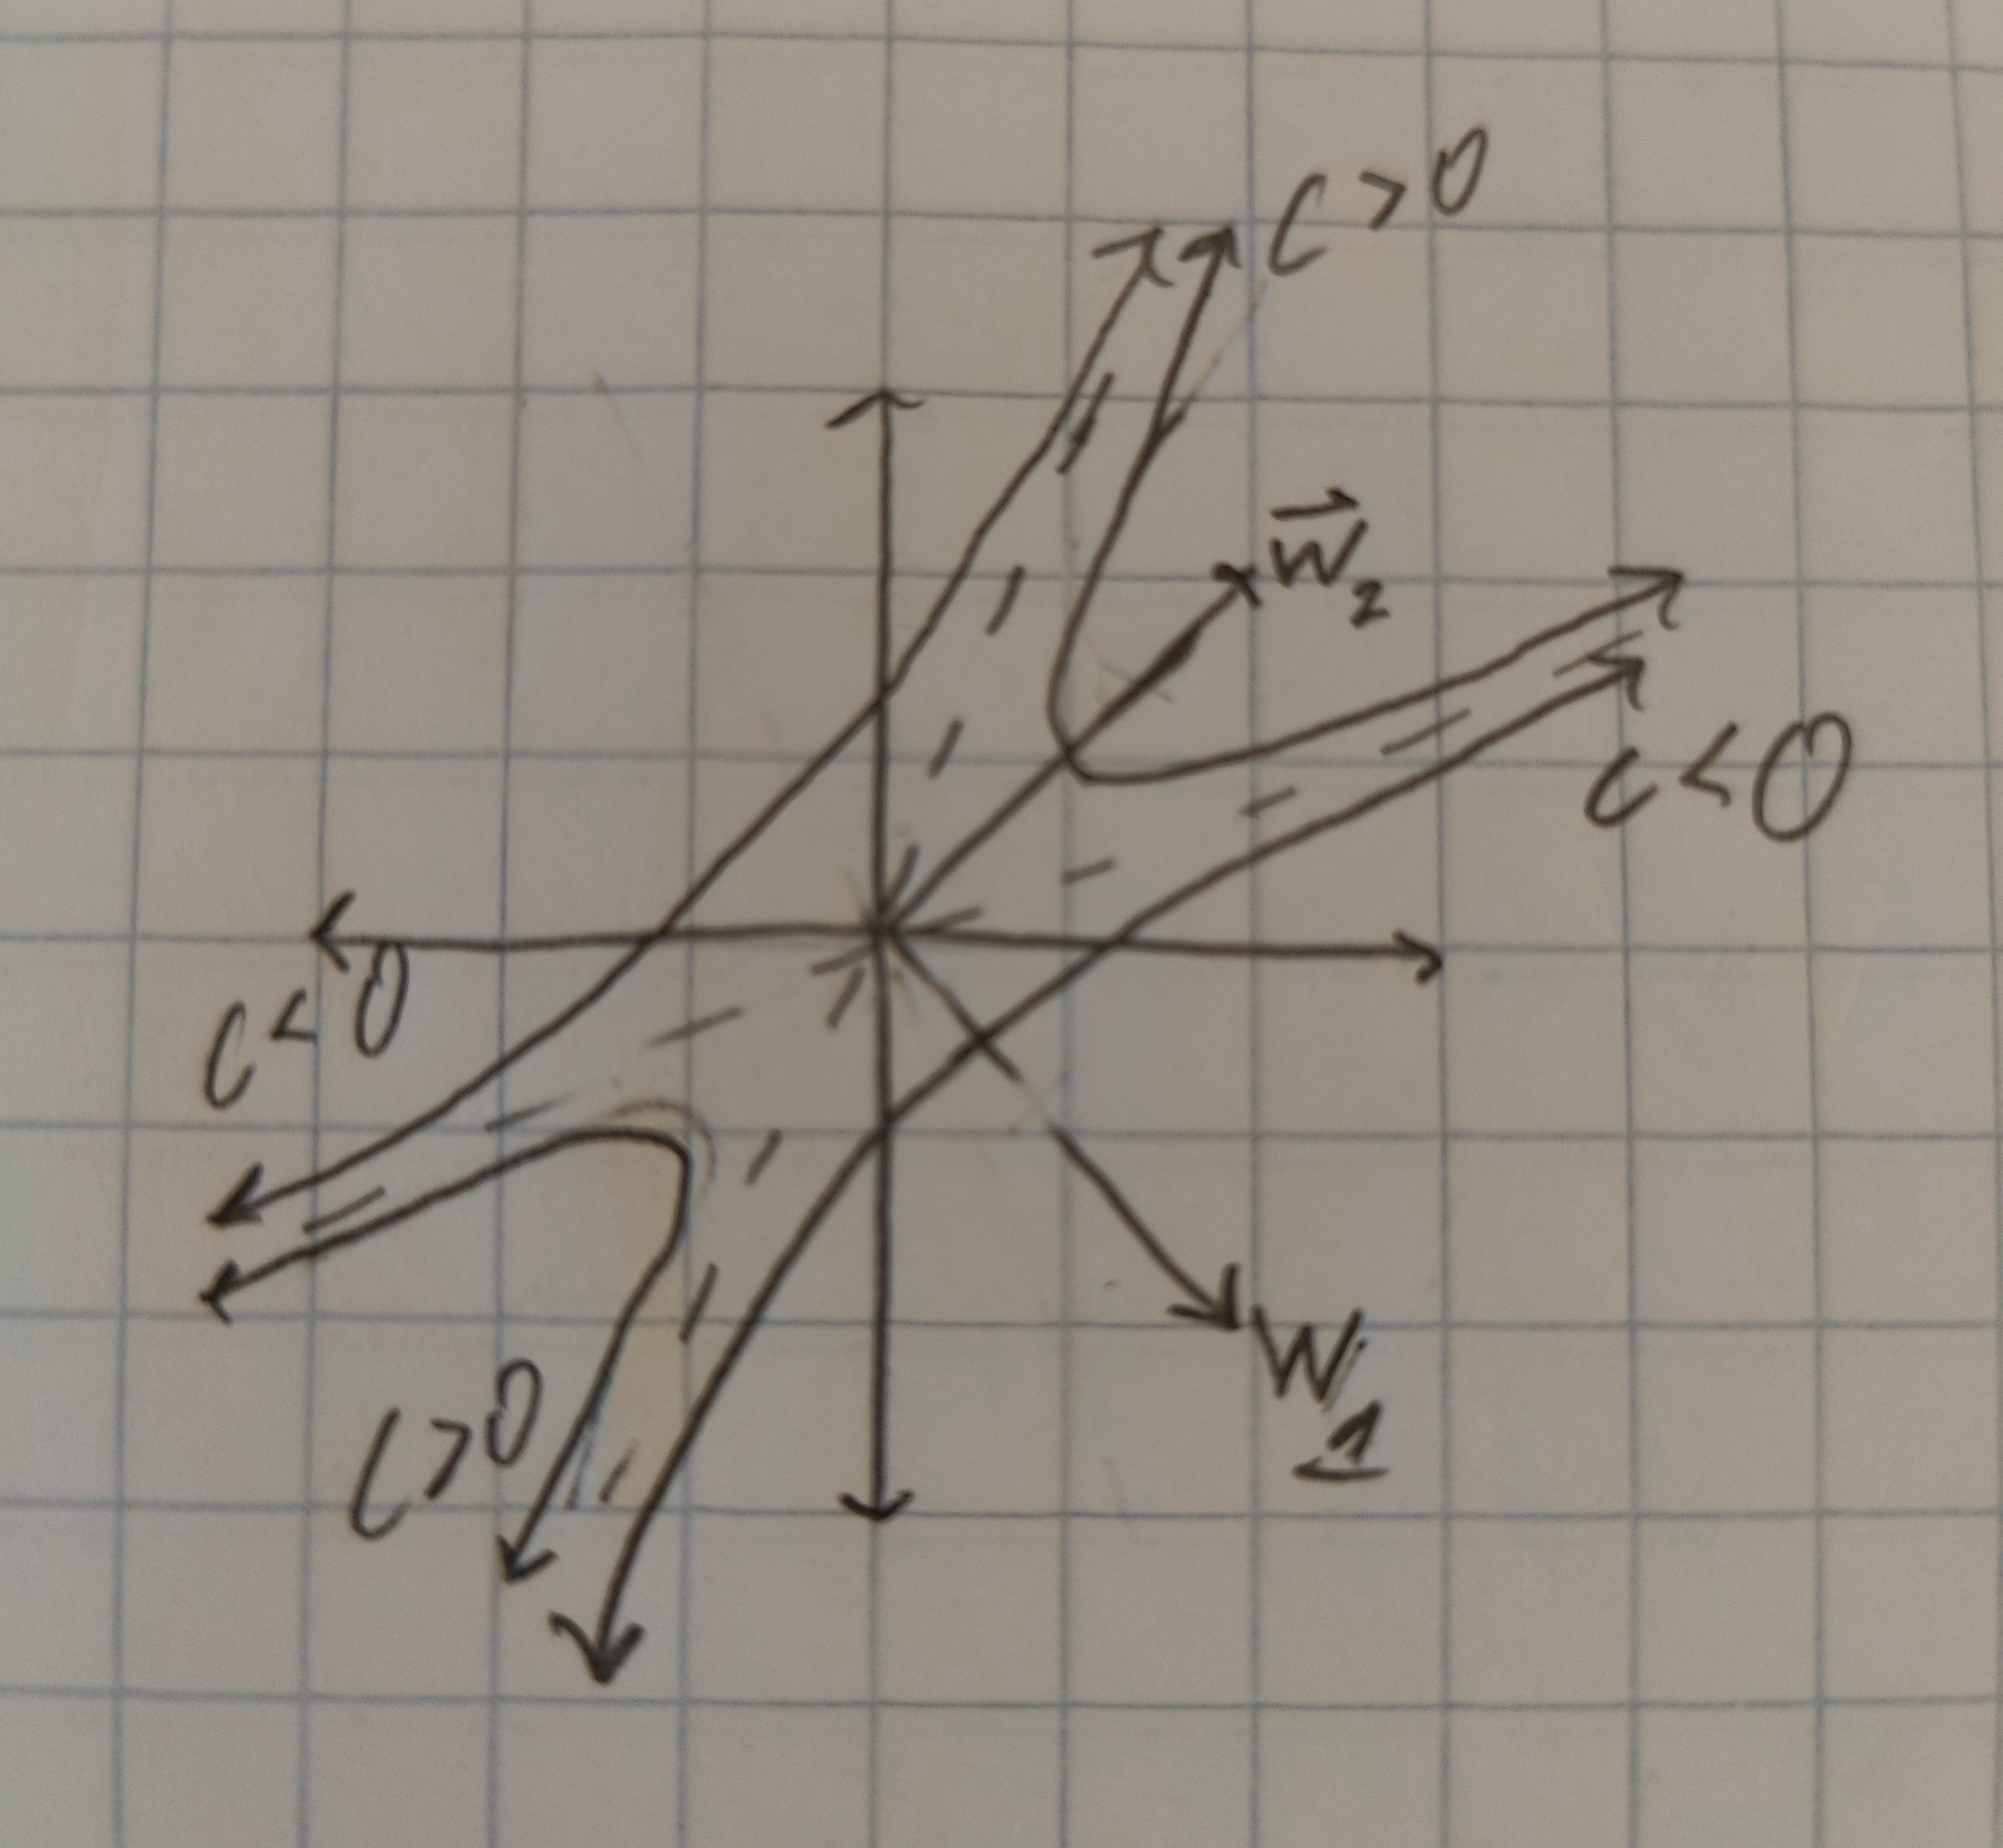 C > 0
w⃗₂
c < 0
c < 0
W₁
C > 0